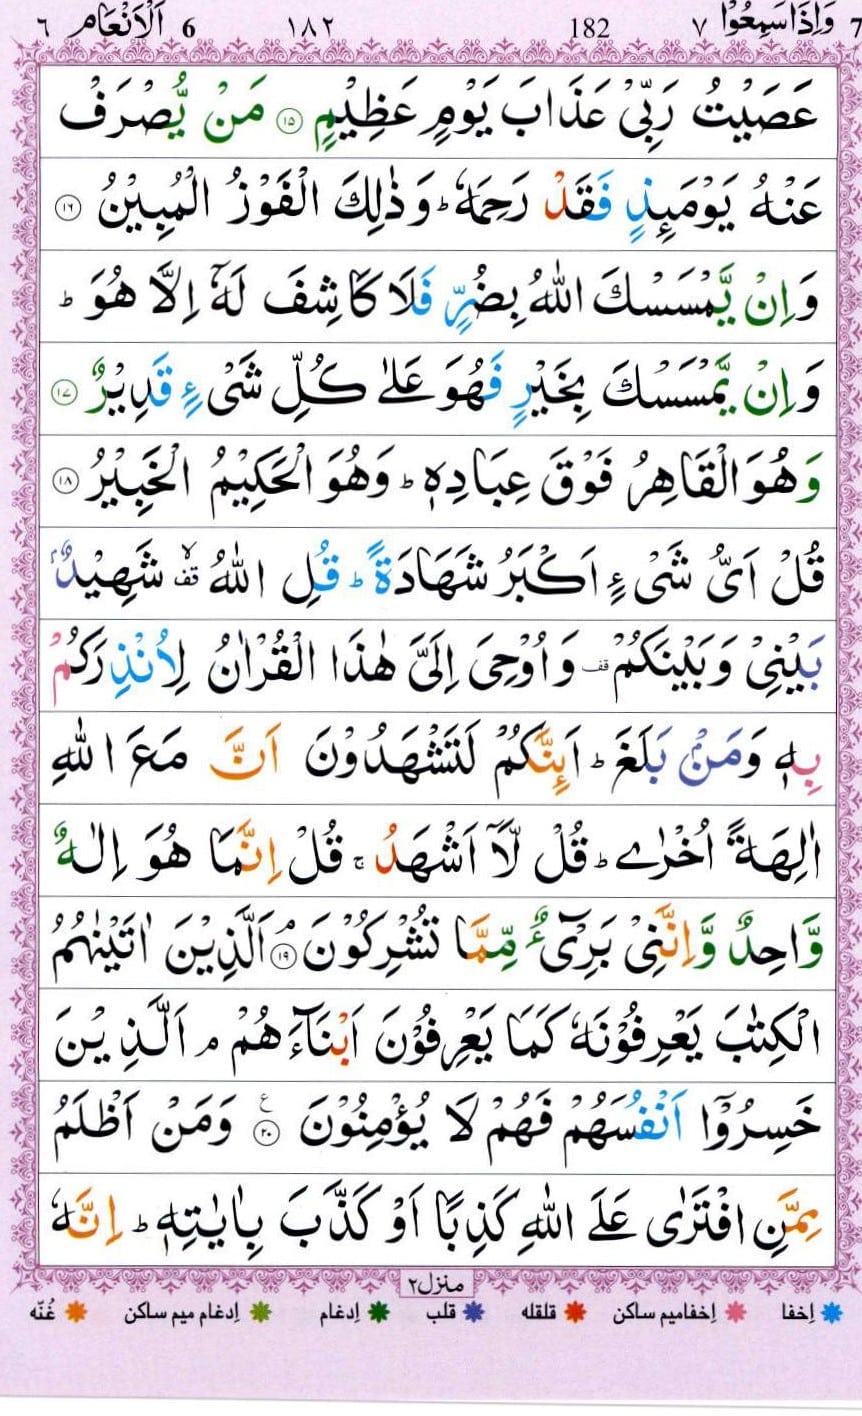 7 وَاِذَا سَمِعُوۡا ٧ 182 ١٨٢ 6 اَلۡاَنۡعَام ٦
عَصَيۡتُ رَبِّىۡ عَذَابَ يَوۡمٍ عَظِيۡمٍ ۝١٥ مَنۡ يُّصۡرَفۡ
عَنۡهُ يَوۡمَٮِٕذٍ فَقَدۡ رَحِمَهٗ‌ؕ وَ ذٰلِكَ الۡفَوۡزُ الۡمُبِيۡنُ ۝١٦
وَاِنۡ يَّمۡسَسۡكَ اللّٰهُ بِضُرٍّ فَلَا كَاشِفَ لَهٗۤ اِلَّا هُوَ‌ؕ
وَاِنۡ يَّمۡسَسۡكَ بِخَيۡرٍ فَهُوَ عَلٰى كُلِّ شَىۡءٍ قَدِيۡرٌ ۝١٧
وَهُوَ الۡقَاهِرُ فَوۡقَ عِبَادِهٖ‌ؕ وَهُوَ الۡحَكِيۡمُ الۡخَبِيۡرُ ۝١٨
قُلۡ اَىُّ شَىۡءٍ اَكۡبَرُ شَهَادَةً‌ ؕ قُلِ اللّٰهُ ۙ قف شَهِيۡدٌۢ
بَيۡنِىۡ وَبَيۡنَكُمۡ‌ قف وَاُوۡحِىَ اِلَىَّ هٰذَا الۡقُرۡاٰنُ لِاُنۡذِرَكُمۡ
بِهٖ وَمَنۡۢ بَلَغَ‌ ؕ اَٮِٕنَّكُمۡ لَتَشۡهَدُوۡنَ اَنَّ مَعَ اللّٰهِ
اٰلِهَةً اُخۡرٰى‌ ؕ قُلْ لَّاۤ اَشۡهَدُ‌ ۚ قُلۡ اِنَّمَا هُوَ اِلٰـهٌ
وَّاحِدٌ وَّاِنَّنِىۡ بَرِىۡٓءٌ مِّمَّا تُشۡرِكُوۡنَ‌ۘ ۝١٩ اَ لَّذِيۡنَ اٰتَيۡنٰهُمُ
الۡكِتٰبَ يَعۡرِفُوۡنَهٗ كَمَا يَعۡرِفُوۡنَ اَبۡنَآءَهُمُ‌ۘ اَ لَّذِيۡنَ
خَسِرُوۡۤا اَنۡفُسَهُمۡ فَهُمۡ لَا يُؤۡمِنُوۡنَ ۝٢٠ ع وَمَنۡ اَظۡلَمُ
مِمَّنِ افۡتَرٰى عَلَى اللّٰهِ كَذِبًا اَوۡ كَذَّبَ بِاٰيٰتِهٖؕ اِنَّهٗ
منزل٢
اِخفا اِخفامیم ساکن قلقله قلب اِدغام اِدغام میم ساکن غُنّه